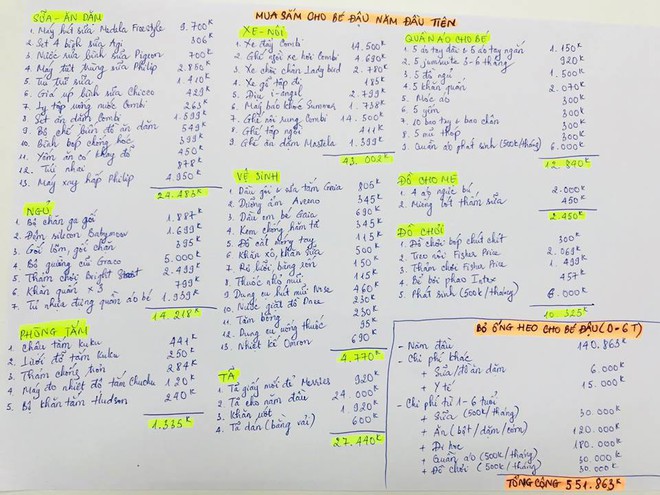 MUA SẮM CHO BÉ ĐẬU NĂM ĐẦU TIÊN
SỮA - ĂN DẶM
1. Máy hút sữa Medela Freestyle 9.700K
2. Set 4 bình sữa Agi 306K
3. Nước rửa bình sữa Pigeon 700K
4. Máy tiệt trùng sữa Philip 2.850K
5. Túi trữ sữa 1.410K
6. Giá úp bình sữa Chicco 429K
7. Ly tập uống nước Combi 263K
8. Set ăn dặm Combi 1.599K
9. Bộ chế biến đồ ăn dặm 549K
10. Bình bóp chống hóc 399K
11. Yếm ăn có khay đổ 450K
12. Túi nhai 878K
13. Máy xay hấp Philip 4.950K
24.483K
NGỦ
1. Bộ chăn ga gối 1.887K
2. Đệm silicon Babymow 1.699K
3. Gối lõm, gối chặn 395K
4. Bộ giường cũi Graco 5.000K
5. Thảm chơi Bright 2.499K
6. Khăn quấn x 3 799K
7. Tủ nhựa đựng quần áo bé 1.939K
14.218K
PHÒNG TẮM
1. Chậu tắm Kuku 441K
2. Lưới đỡ tắm Kuku 250K
3. Thảm chống trơn 284K
4. Máy đo nhiệt độ tắm Chuchu 120K
5. Bộ khăn tắm Hudson 240K
1.335K
XE - NÔI
1. Xe đẩy Combi 14.500K
2. Ghế ngồi xe hơi Combi 4.690K
3. Xe chòi chân Lady bird 2.780K
4. Xe gỗ tập đi 185K
5. Địu i-angel 2.799K
6. Máy báo khóc Summer 1.738K
7. Ghế nôi rung Combi 14.500K
8. Ghế tập ngồi 411K
9. Ghế ăn dặm Mastela 1.399K
43.002K
VỆ SINH
1. Dầu gội & sữa tắm Gaia 805K
2. Dưỡng ẩm Aveno 345K
3. Dầu em bé Gaia 690K
4. Kem chống hăm tã 345K
5. Đồ cắt móng tay 115K
6. Khăn xô, khăn sữa 500K
7. Rơ lưỡi băng rốn 150K
8. Thuốc nhỏ mũi 115K
9. Dụng cụ hút mũi Nose 460K
10. Nước giặt đồ Dnee 230K
11. Tăm bông 230K
12. Dụng cụ uống thuốc 95K
13. Nhiệt kế Omron 690K
4.770K
TÃ
1. Tã giấy mới đẻ Merries 920K
2. Tã cho năm đầu 24.000K
3. Khăn ướt 1.920K
4. Tã dán (bằng vải) 600K
27.440K
QUẦN ÁO CHO BÉ
1. 5 áo tay dài & 5 áo tay ngắn 1.150K
2. 5 jumpsuits 3-6 tháng 920K
3. 5 đồ ngủ 1.500K
4. 5 khăn quấn 2.070K
5. Móc áo 300K
6. 5 yếm 300K
7. 10 bao tay & bao chân 300K
8. 5 mũ thóp 300K
9. Quần áo phát sinh (500K/tháng) 6.000K
12.840K
ĐỒ CHO MẸ
1. 4 áo ngực bú 2.000K
2. Miếng lót thấm sữa 450K
2.450K
ĐỒ CHƠI
1. Đồ chơi bóp chút chít 300K
2. Treo nôi Fisher Price 2.069K
3. Thảm chơi Fisher Price 1.499K
4. Bể bơi phao Intex 457K
5. Phát sinh (500K/tháng) 6.000K
10.325K
BỎ ỐNG HEO CHO BÉ ĐẬU (0-6T)
- Năm đầu 140.863K
- Chi phí khác
+ Sữa / đồ ăn dặm 6.000K
+ Y tế 15.000K
- Chi phí từ 1-6 tuổi
+ Sữa (500K/tháng) 30.000K
+ Ăn (bột / dặm / cơm) 120.000K
+ Đi học 180.000K
+ Quần áo (500K/tháng) 30.000K
+ Đồ chơi (500K/tháng) 30.000K
TỔNG CỘNG 551.863K